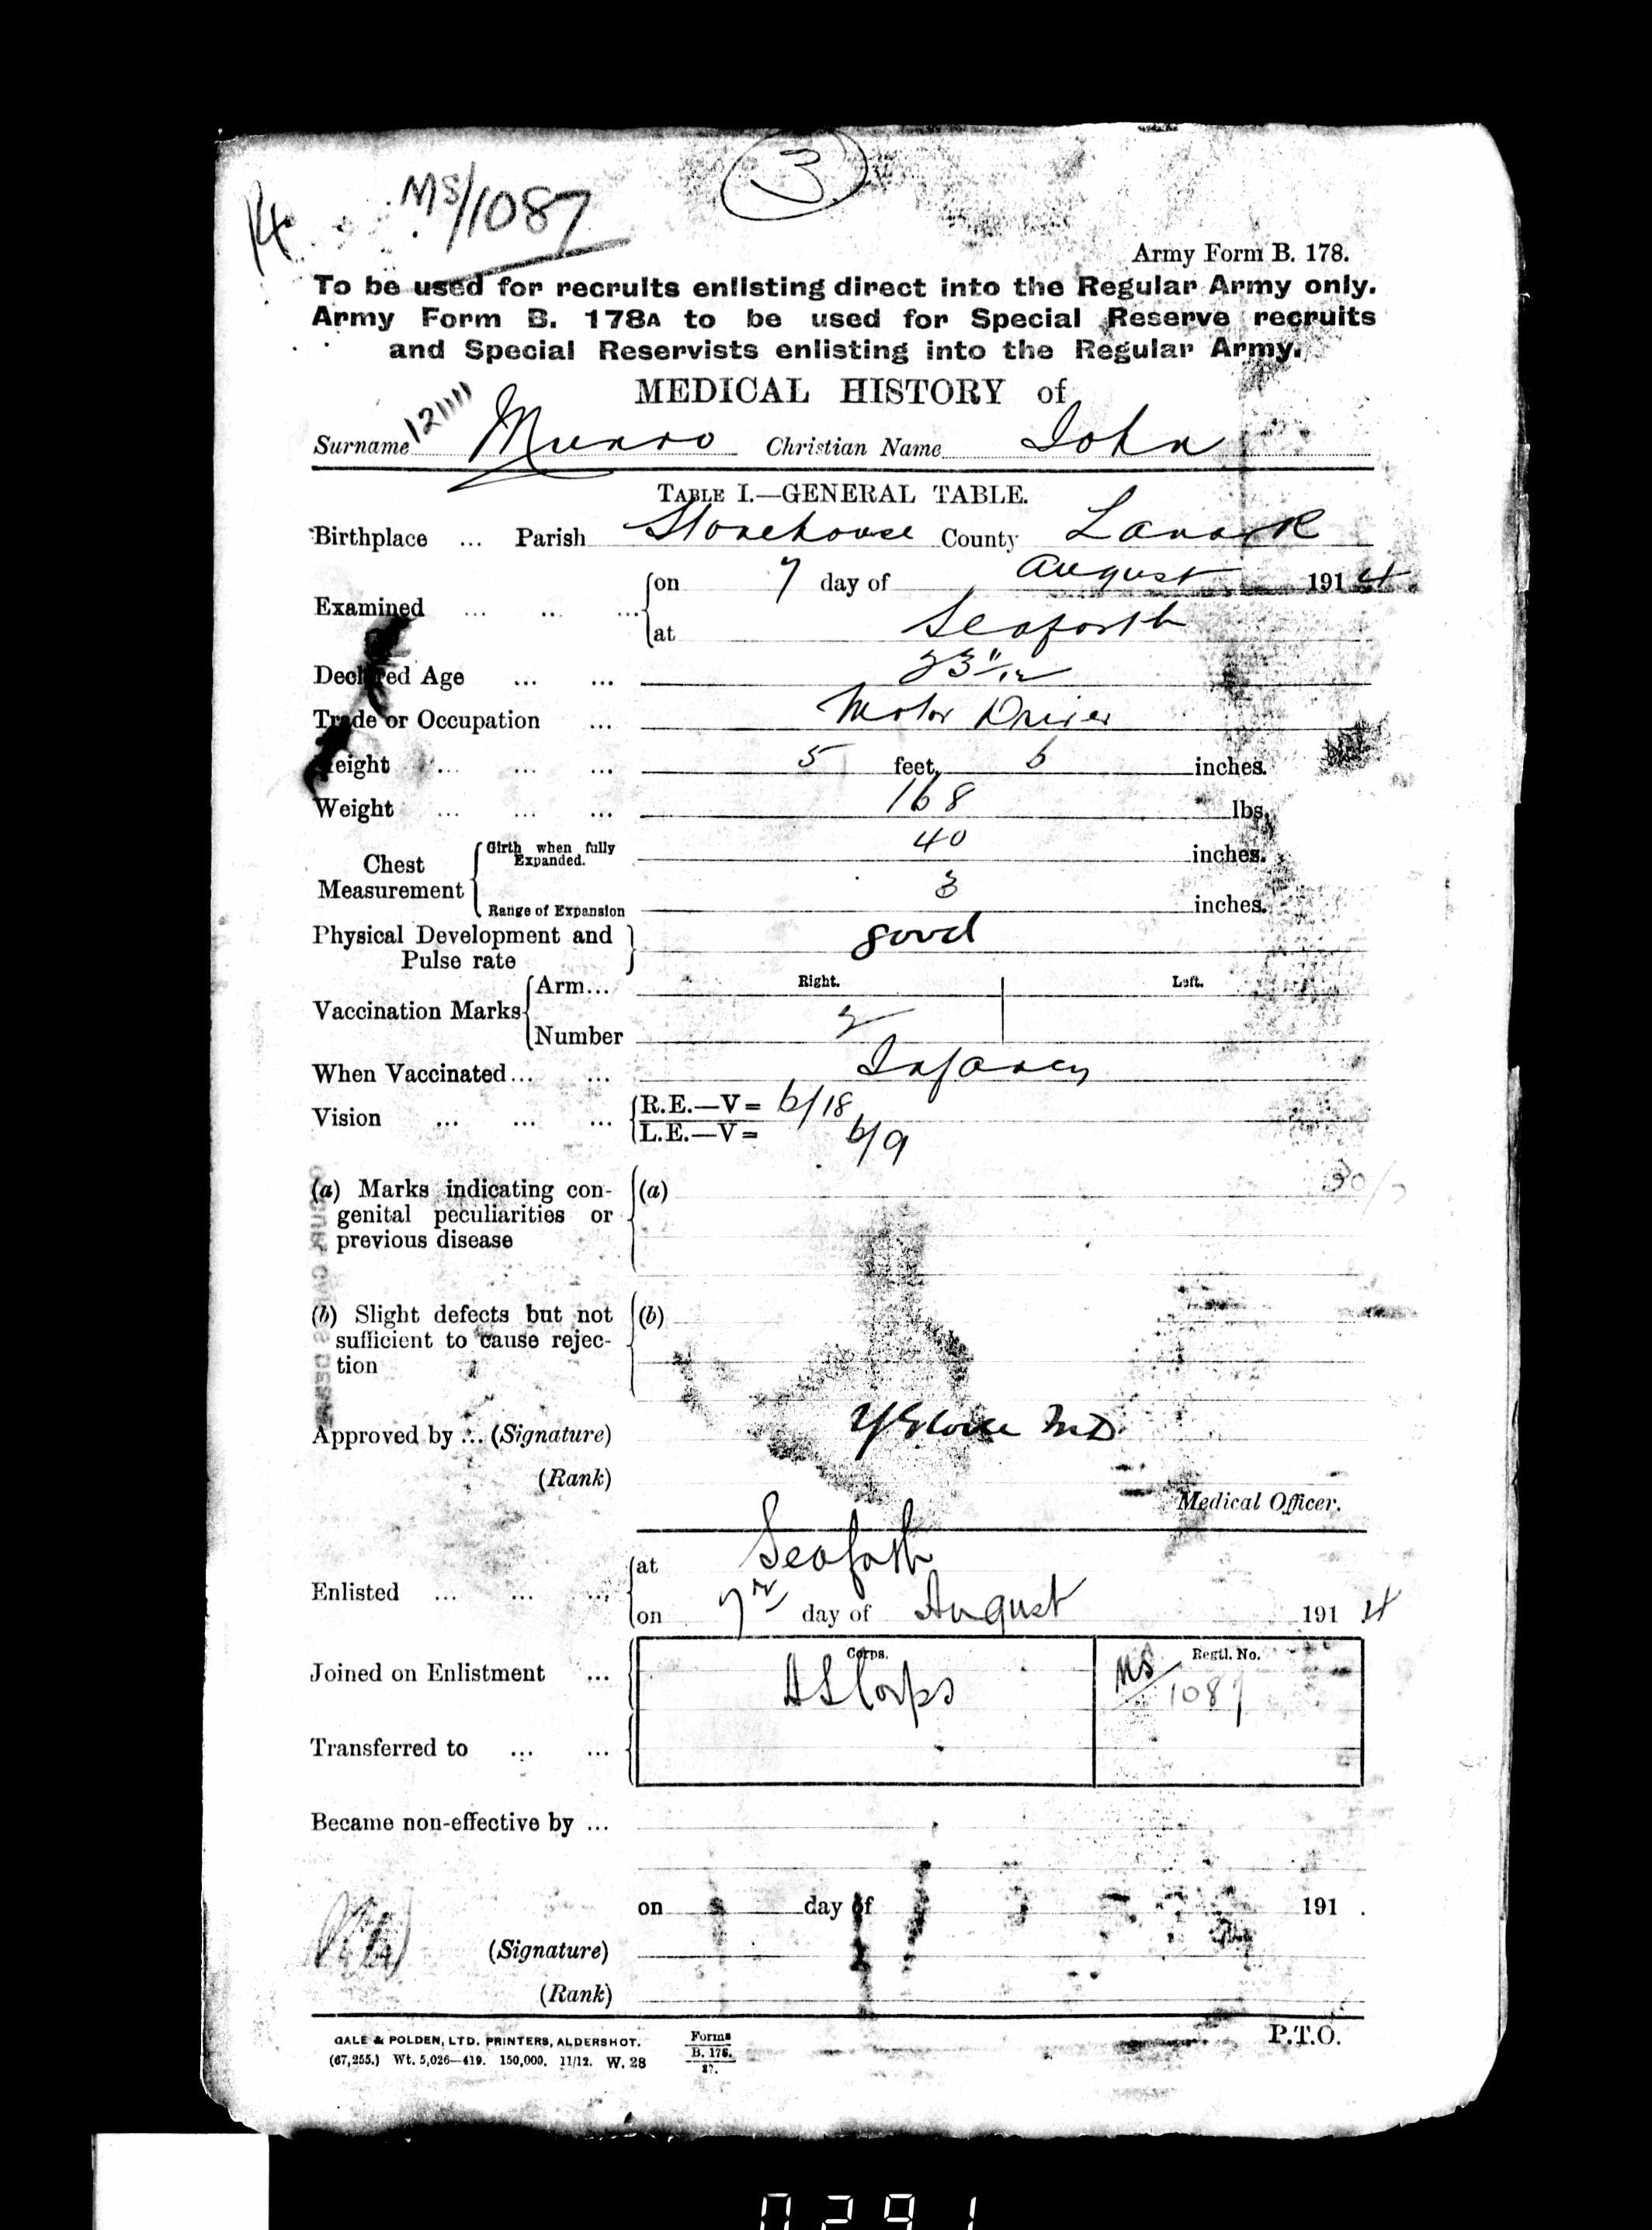 3
14
MS/1087
Army Form B. 178.
To be used for recruits enlisting direct into the Regular Army only.
Army Form B. 178A to be used for Special Reserve recruits
and Special Reservists enlisting into the Regular Army.
MEDICAL HISTORY of
Surname Munro Christian Name John
TABLE I.—GENERAL TABLE.
Birthplace ... Parish Stonehouse County Lanark
Examined ... ... ... on 7 day of August 1914
at Seaforth
Declared Age ... ... 23 11/12
Trade or Occupation ... Motor Driver
Height ... ... ... 5 feet 6 inches.
Weight ... ... ... 168 lbs.
Chest Measurement Girth when fully Expanded. 40 inches.
Range of Expansion 3 inches.
Physical Development and Pulse rate good
Vaccination Marks Arm... Right. Left.
Number 2
When Vaccinated... ... Infancy
Vision ... ... ... R.E.—V= 6/18
L.E.—V= 6/9
(a) Marks indicating con- (a)
genital peculiarities or
previous disease
(b) Slight defects but not (b)
sufficient to cause rejec-
tion
Approved by ... (Signature) M.D.
(Rank)
Medical Officer.
Enlisted ... ... ... at Seaforth
on 7th day of August 1914
Corps. Regtl. No.
Joined on Enlistment ... A S Corps MS/1087
Transferred to ... ...
Became non-effective by ...
on day of 191 .
(Signature)
(Rank)
GALE & POLDEN, LTD. PRINTERS, ALDERSHOT.
(67,255.) Wt. 5,026—419. 150,000. 11/12. W. 28
Forms
B. 178.
37.
P.T.O.
0291